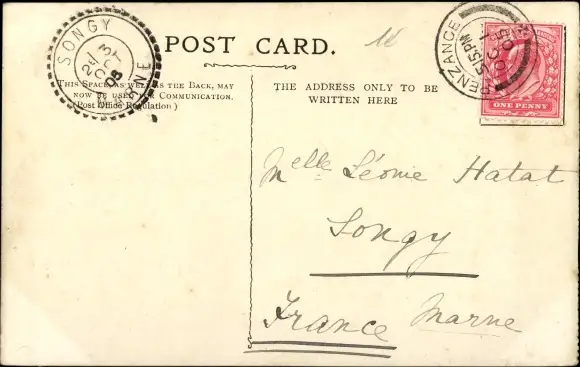 POST CARD.
THIS SPACE AS WELL AS THE BACK, MAY
NOW BE USED FOR COMMUNICATION.
(Post Office Regulation)
THE ADDRESS ONLY TO BE
WRITTEN HERE
SONGY
MARNE
PENZANCE
5.15 PM
ONE PENNY
Melle Léonie Hatat
Songy
France Marne